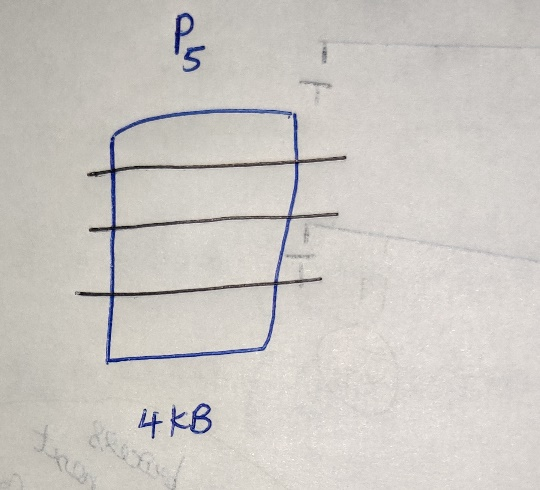 P5
4KB